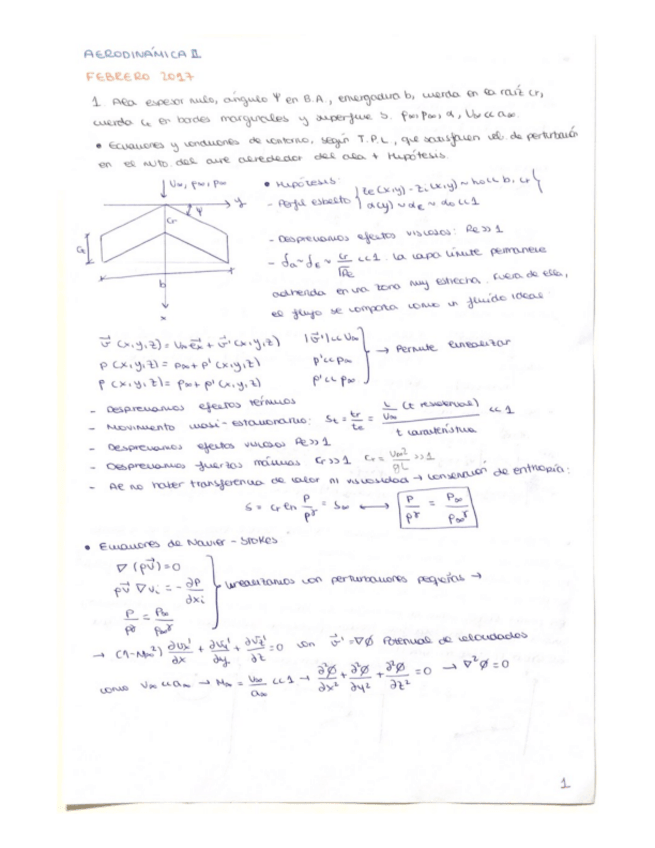 AERODINÁMICA II
FEBRERO 2017
1. Ala espesor nulo, ángulo Ψ en B.A., envergadura b, cuerda en la raíz cr,
cuerda ct en bordes marginales y superficie S. ρ∞, p∞, α, U∞ << a∞.
• Ecuaciones y condiciones de contorno, según T.P.L., que satisfacen vel. de perturbación
en el mvto. del aire alrededor del ala + Hipótesis.
U∞, p∞, ρ∞
y
Ψ
cr
b
x
• Hipótesis:
- Perfil esbelto
- Despreciamos efectos viscosos: Re >> 1
<< 1. La capa límite permanece
adherida en una zona muy estrecha. Fuera de ella,
el flujo se comporta como un fluido ideal.
v⃗ (x,y,z) = U∞ e⃗x + v⃗' (x,y,z) |v⃗'| << U∞
p (x,y,z) = p∞ + p' (x,y,z) p' << p∞
ρ (x,y,z) = ρ∞ + ρ' (x,y,z) ρ' << ρ∞
→ Permite linealizar
- Despreciamos efectos térmicos
- Movimiento cuasi-estacionario: St = tr/tc = (L/U∞ (t residencial))/(t característico) << 1
- Despreciamos efectos viscosos Re >> 1
- Despreciamos fuerzas másicas Fr >> 1 Fr = U∞²/gL >> 1
- Al no haber transferencia de calor ni viscosidad → conservación de entropía:
s = cv ln p/ρ^γ = s∞ ⟷ p/ρ^γ = p∞/ρ∞^γ
• Ecuaciones de Navier-Stokes
∇(ρv⃗) = 0
ρv⃗ ∇vi = -∂p/∂xi
p/ρ^γ = p∞/ρ∞^γ
linealizamos con perturbaciones pequeñas →
→ (1-M∞²) ∂vx'/∂x + ∂vy'/∂y + ∂vz'/∂z = 0 con v⃗' = ∇φ Potencial de velocidades
como U∞ << a∞ → M∞ = U∞/a∞ << 1 → ∂²φ/∂x² + ∂²φ/∂y² + ∂²φ/∂z² = 0 → ∇²φ = 0
1